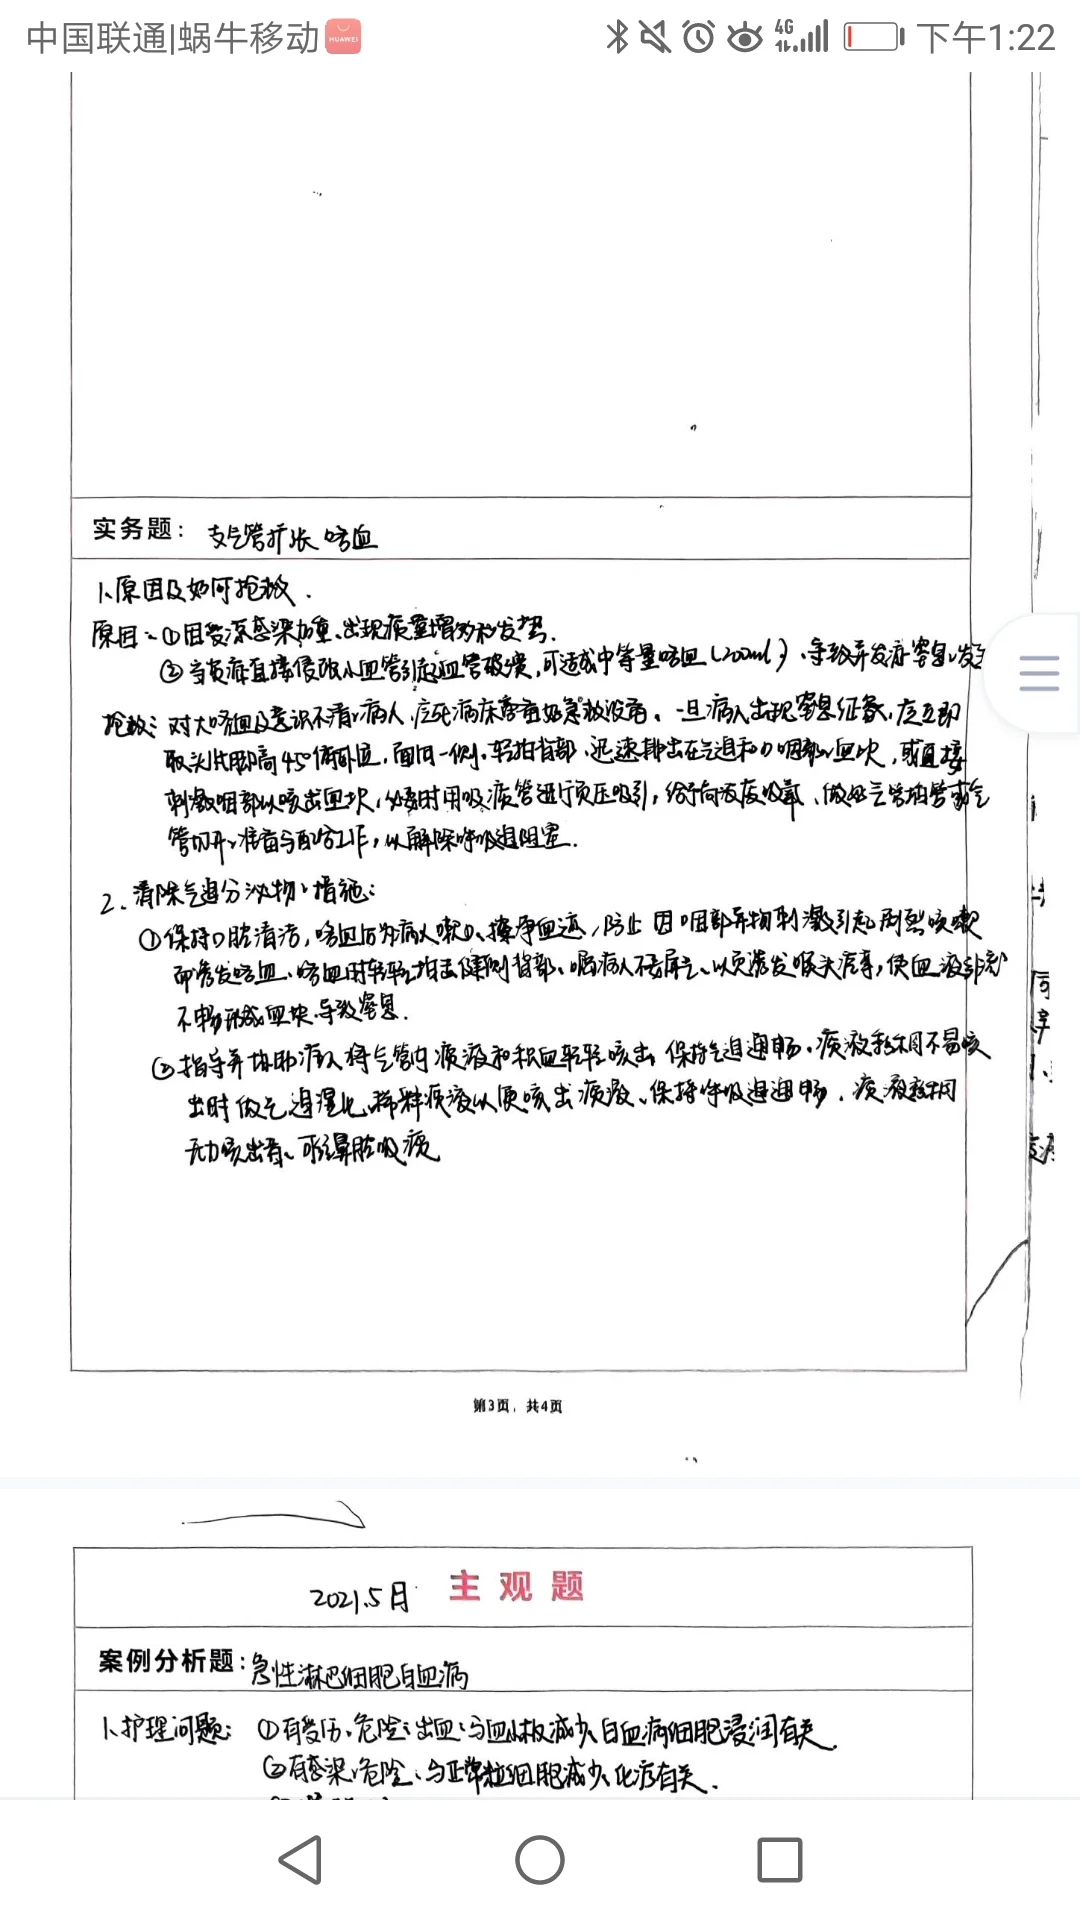 中国联通|蜗牛移动 HUAWEI 4G 下午1:22
实务题: 支气管扩张 咯血
1、原因及如何抢救.
原因:①因受凉感染加重、出现痰量增多和发热.
②当炎症直接侵蚀小血管引起血管破溃,可造成中等量咯血(200ml)、导致并发症窒息、发
抢救: 对大咯血及意识不清、病人,应在病床旁备好急救设备、一旦病人出现窒息征象,应立即
取头低脚高45°俯卧位,面向一侧、轻拍背部、迅速排出在气道和口咽部、血块,或直接
刺激咽部以咳出血块,必要时用吸痰管进行负压吸引,给予高浓度吸氧、做好气管插管或气
管切开、准备与配合工作,以解除呼吸道阻塞.
2、清除气道分泌物、措施:
①保持口腔清洁,咯血后为病人漱口、擦净血迹,防止因咽部异物刺激引起剧烈咳嗽
而诱发咯血、咯血时轻轻拍击健侧背部、嘱病人不要屏气、以免诱发喉头痉挛,使血液引流
不畅形成血块、导致窒息.
②指导并协助病人将气管内痰液和积血轻轻咳出、保持气道通畅.痰液黏稠不易咳
出时做气道湿化、稀释痰液以便咳出痰液、保持呼吸道通畅.痰液黏稠
无力咳出者、可经鼻腔吸痰
第3页, 共4页
2021.5月 主观题
案例分析题: 急性淋巴细胞白血病
1、护理问题: ①有受伤、危险:出血、与血小板减少、白血病细胞浸润有关.
②有感染、危险、与正常粒细胞减少、化疗有关.